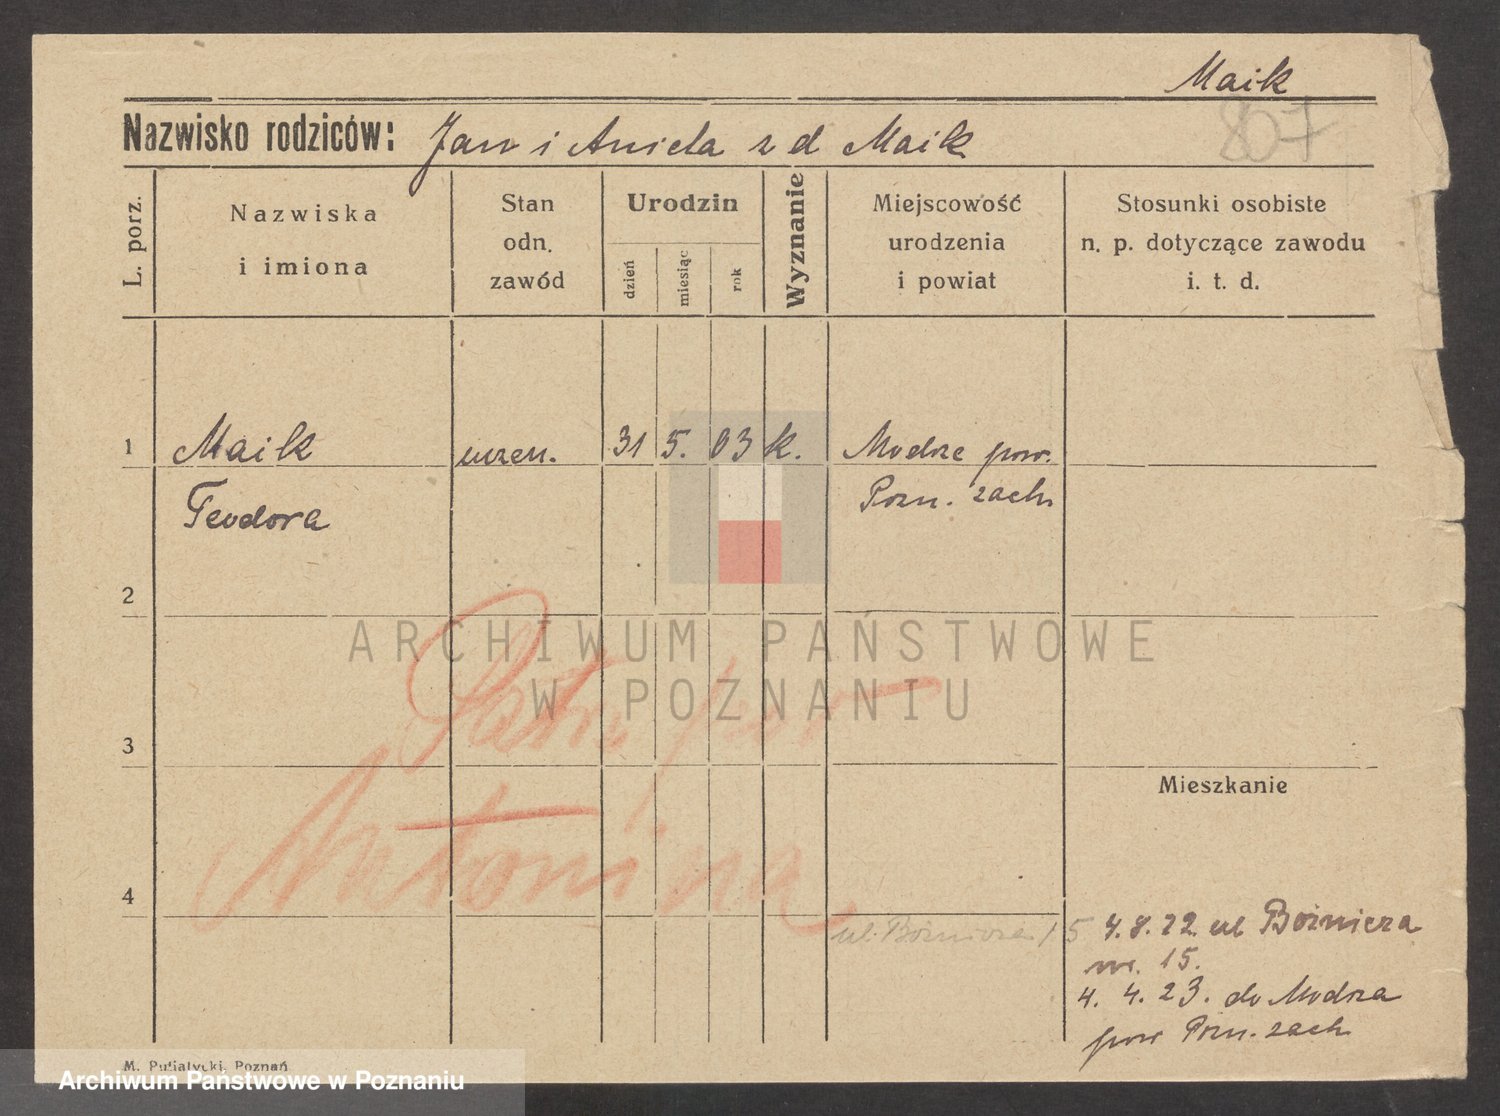 Maik
807
Nazwisko rodziców: Jan i Aniela z d Maik
L. porz.
Nazwiska
i imiona
Stan
odn.
zawód
Urodzin
dzień
miesiąc
rok
Wyznanie
Miejscowość
urodzenia
i powiat
Stosunki osobiste
n. p. dotyczące zawodu
i. t. d.
1 Maik uczen. 31 5. 03 k. Modrze pow.
Teodora Pozn. zach.
2
ARCHIWUM PAŃSTWOWE
W POZNANIU
3
Mieszkanie
Antonina
4
ul. Bożnicza 15
4.8.22 ul Bożnicza
nr. 15.
4. 4. 23. do Modrza
pow Pozn. zach
M. Putiatycki, Poznań
Archiwum Państwowe w Poznaniu